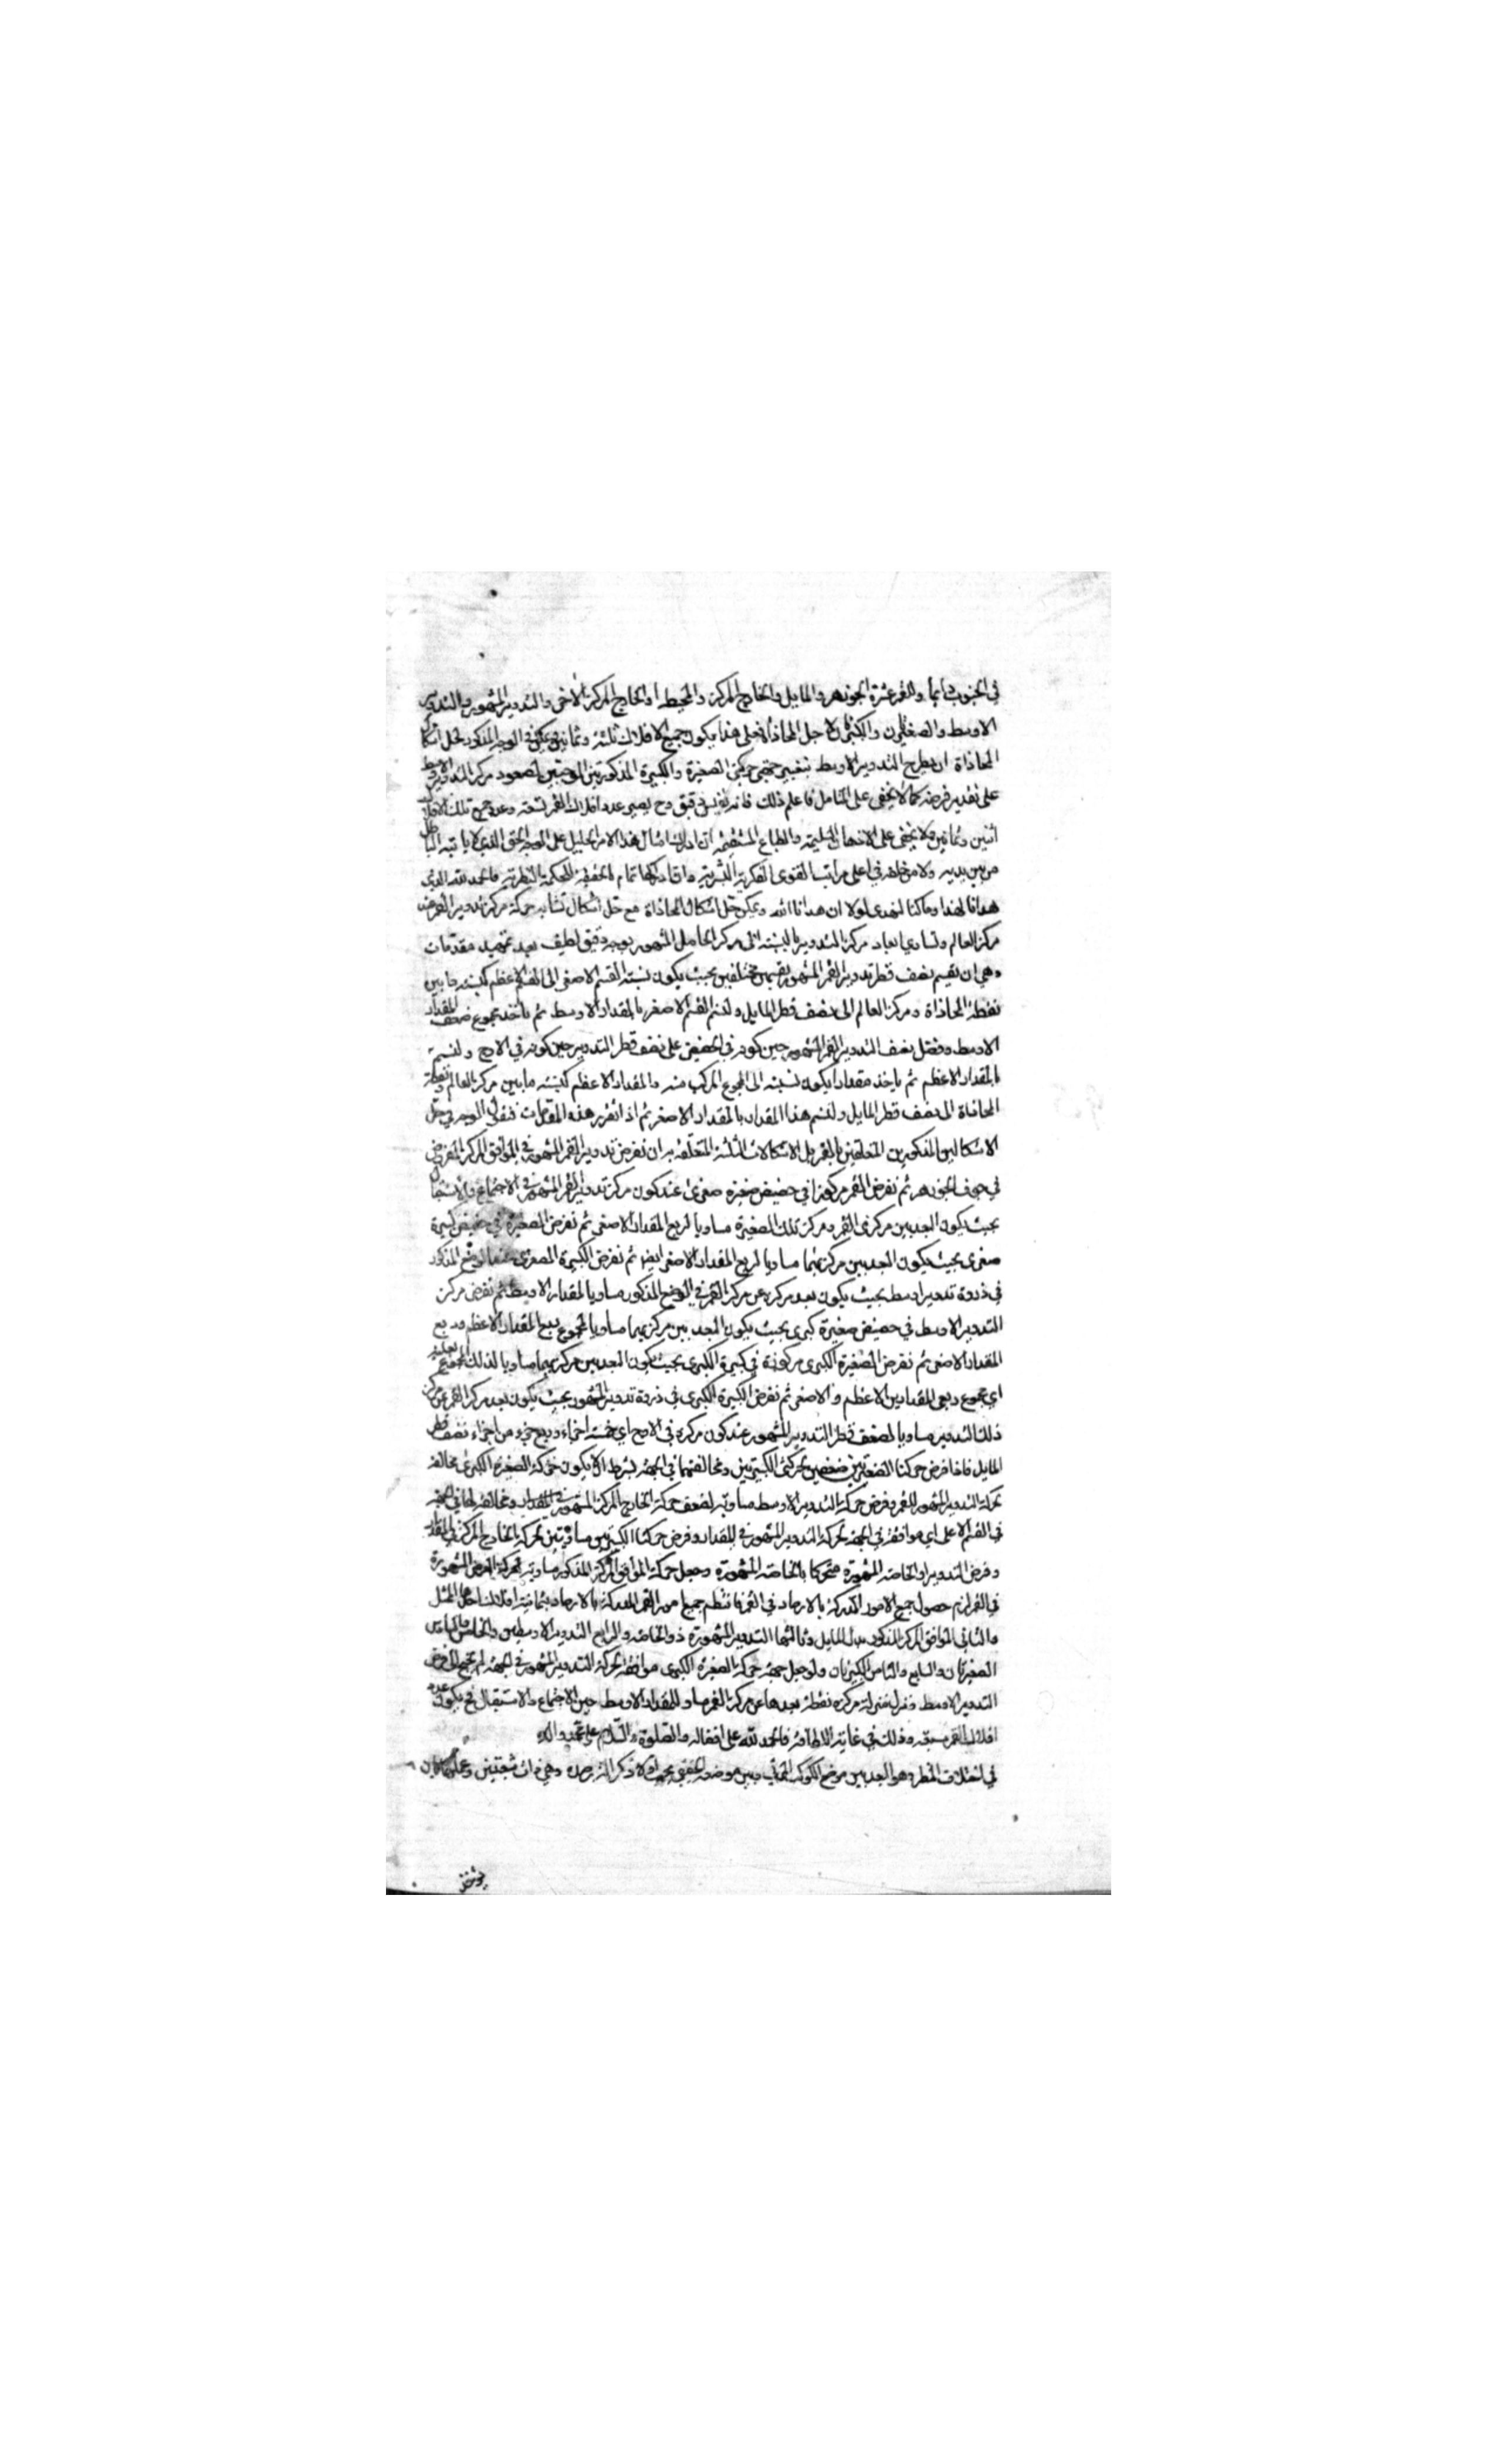 في الجنوب دايما وللقمر عشرة الجوزهر والمايل والخارج المركز والمحيط او الخارج المركز الاخر والتدوير المشهور والتدوير
الاوسط والصغيرتان والكبيرتان لاجل المحاذاة فعلى هذا يكون جميع الافلاك ثلثة وثمانين ويمكن في الوجه المذكور لحل اشكال
المحاذاة ان يطرح التدوير الاوسط بتغيير جهتي حركتي الصغيرة والكبيرة المذكورتين الموجبتين لصعود مركز التدوير الاوسط
على تقدير فرضه كما لا يخفى على المتامل فاعلم ذلك فانه دقيق وح يصير عدد افلاك القمر تسعة وعدد جميع تلك الافلاك
اثنين وثمانين ولا يخفى على الاذهان السليمة والطباع المستقيمة ان ادراك امثال هذا الامر الجليل على الوجه الحق الذي لا ياتيه الباطل
من بين يديه ولا من خلفه في اعلى مراتب القوى الفكرية البشرية وان ادراكها تمام الحكمة النظرية فالحمد لله الذي
هدانا لهذا وما كنا لنهتدي لولا ان هدانا الله ويمكن حل اشكال المحاذاة مع حل اشكال تشابه حركة مركز تدوير القمر عند
مركز العالم وتساوي ابعاد مركز التدوير بالنسبة الى مركز الحامل المشهور بوجه دقيق لطيف بعد تمهيد مقدمات
وهي ان نقسم نصف قطر تدوير القمر المشهور بقسمين مختلفين بحيث يكون نسبة القسم الاصغر الى القسم الاعظم كنسبة ما بين
نقطة المحاذاة ومركز العالم الى نصف قطر المايل ولنسم القسم الاصغر بالمقدار الاوسط ثم ناخذ مجموع ضعف المقدار
الاوسط وفضل نصف التدوير القمر المشهور حين كونه في الحضيض على نصف قطر التدوير حين كونه في الاوج ولنسمه
بالمقدار الاعظم ثم ناخذ مقدارا يكون نسبته الى المجموع المركب منه والمقدار الاعظم كنسبة ما بين مركز العالم ونقطة
المحاذاة الى نصف قطر المايل ولنسم هذا المقدار بالمقدار الاصغر ثم اذا تقرر هذه المقدمات فنقول الوجه في حل
الاشكالين المذكورين المتعلقين بالقمر بل الاشكالات الثلثة المتعلقة به ان نفرض تدوير القمر المشهور في الموافق المركز المفروض
في جوف الجوزهر ثم نفرض القمر مركوزا في حضيض صغيرة صغرى عند كون مركز تدوير القمر المشهور في الاجتماع والاستقبال
بحيث يكون البعد بين مركزي القمر ومركز تلك الصغيرة مساويا لربع المقدار الاصغر ثم نفرض الصغيرة في حضيض كبيرة
صغرى بحيث يكون البعد بين مركزيهما مساويا لربع المقدار الاصغر ايضا ثم نفرض الكبيرة الصغرى عند الوضع المذكور
في ذروة تدوير اوسط بحيث يكون بعد مركزه عن مركز القمر في الوضع المذكور مساويا للمقدار الاوسط ثم نفرض مركز
التدوير الاوسط في حضيض صغيرة كبرى بحيث يكون البعد بين مركزيهما مساويا لمجموع ربع المقدار الاعظم وربع
المقدار الاصغر ثم نفرض الصغيرة الكبرى مركوزة في كبيرة الكبرى بحيث يكون البعد بين مركزيهما مساويا لذلك المجموع
اي مجموع ربعي المقدارين الاعظم والاصغر ثم نفرض الكبيرة الكبرى في ذروة تدوير المشهور بحيث يكون بعد مركز القمر عن مركز
ذلك التدوير مساويا لنصف قطر التدوير المشهور عند كون مركزه في الاوج اي خمسة اجزاء وربع جزء من اجزاء نصف قطر
المايل فاذا فرض حركتا الصغيرتين ضعفي حركتي الكبيرتين ومخالفتهما في الجهة بشرط ان يكون حركة الصغيرة الكبرى مخالفة
لحركة التدوير المشهور للقمر وفرض حركة التدوير الاوسط مساوية لضعف حركة الخارج المركز المشهور في المقدار ومخالفة لها في الجهة
في القسم الاعلى اي موافقة في الجهة لحركة التدوير المشهور في المقدار وفرض حركتا الكبيرتين مساويتين لحركة الخارج المركز في المقدار
وفرض التدوير ذو الخاصة المشهورة متحركا بالخاصة المشهورة وجعل حركة الموافق المركز المذكور مساوية لحركة العرض المشهورة
في القمر لزم حصول جميع الامور المدركة بالارصاد في القمر فانتظم جميع امور القمر المدركة بالارصاد بثمانية افلاك احدها الممثل
والثاني الموافق المركز المذكور بدل المايل وثالثها التدوير المشهورة ذو الخاصة والرابع التدوير الاوسط والخامس والسادس
الصغيرتان والسابع والثامن الكبيرتان ولو جعل جهة حركة الصغيرة الكبرى موافقة لحركة التدوير المشهور في الجهة لم يحتج الى فرض
التدوير الاوسط ونزل منزلة مركزه نقطة بعدها عن مركز القمر مساو للمقدار الاوسط حين الاجتماع والاستقبال فح يكون عدد
افلاك القمر سبعة وذلك في غاية اللطافة فالحمد لله على افضاله والصلوة والسلام على محمد واله
في اختلاف المنظر وهو البعد بين موضع الكوكب المرئي وبين موضعه الحقيقي وهي ذات شعبتين